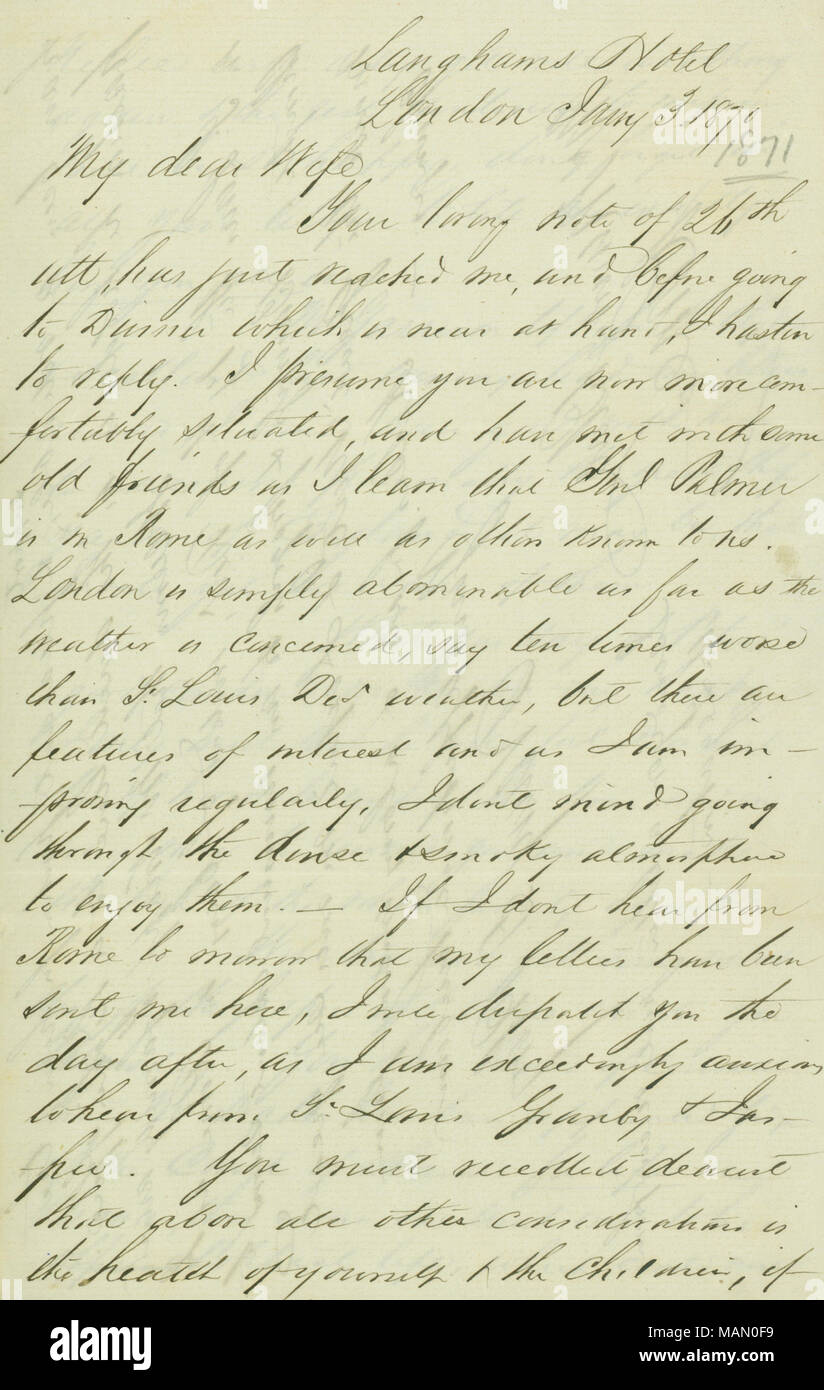 Langhams Hotel
London Jany 3. 1870
1871
My dear Wife
Your loving note of 26th
ult, has just reached me, and before going
to Dinner which is near at hand, I hasten
to reply. I presume you are now more com-
fortably situated, and have met with some
old friends as I learn that Genl Palmer
is in Rome as well as others known to us.
London is simply abominable as far as the
weather is concerned, say ten times worse
than St. Louis Decr weather, but there are
features of interest and as I am im-
-proving regularly, I dont mind going
through the dense & smoky atmosphere
to enjoy them. — If I dont hear from
Rome to morrow that my letters have been
sent me here, I will dispatch you the
day after, as I am exceedingly anxious
to hear from St. Louis Granby & Jas-
-per. You must recollect dearest
that above all other considerations is
the health of yourself & the children, if
alamy
Image ID: MAN0F9
www.alamy.com